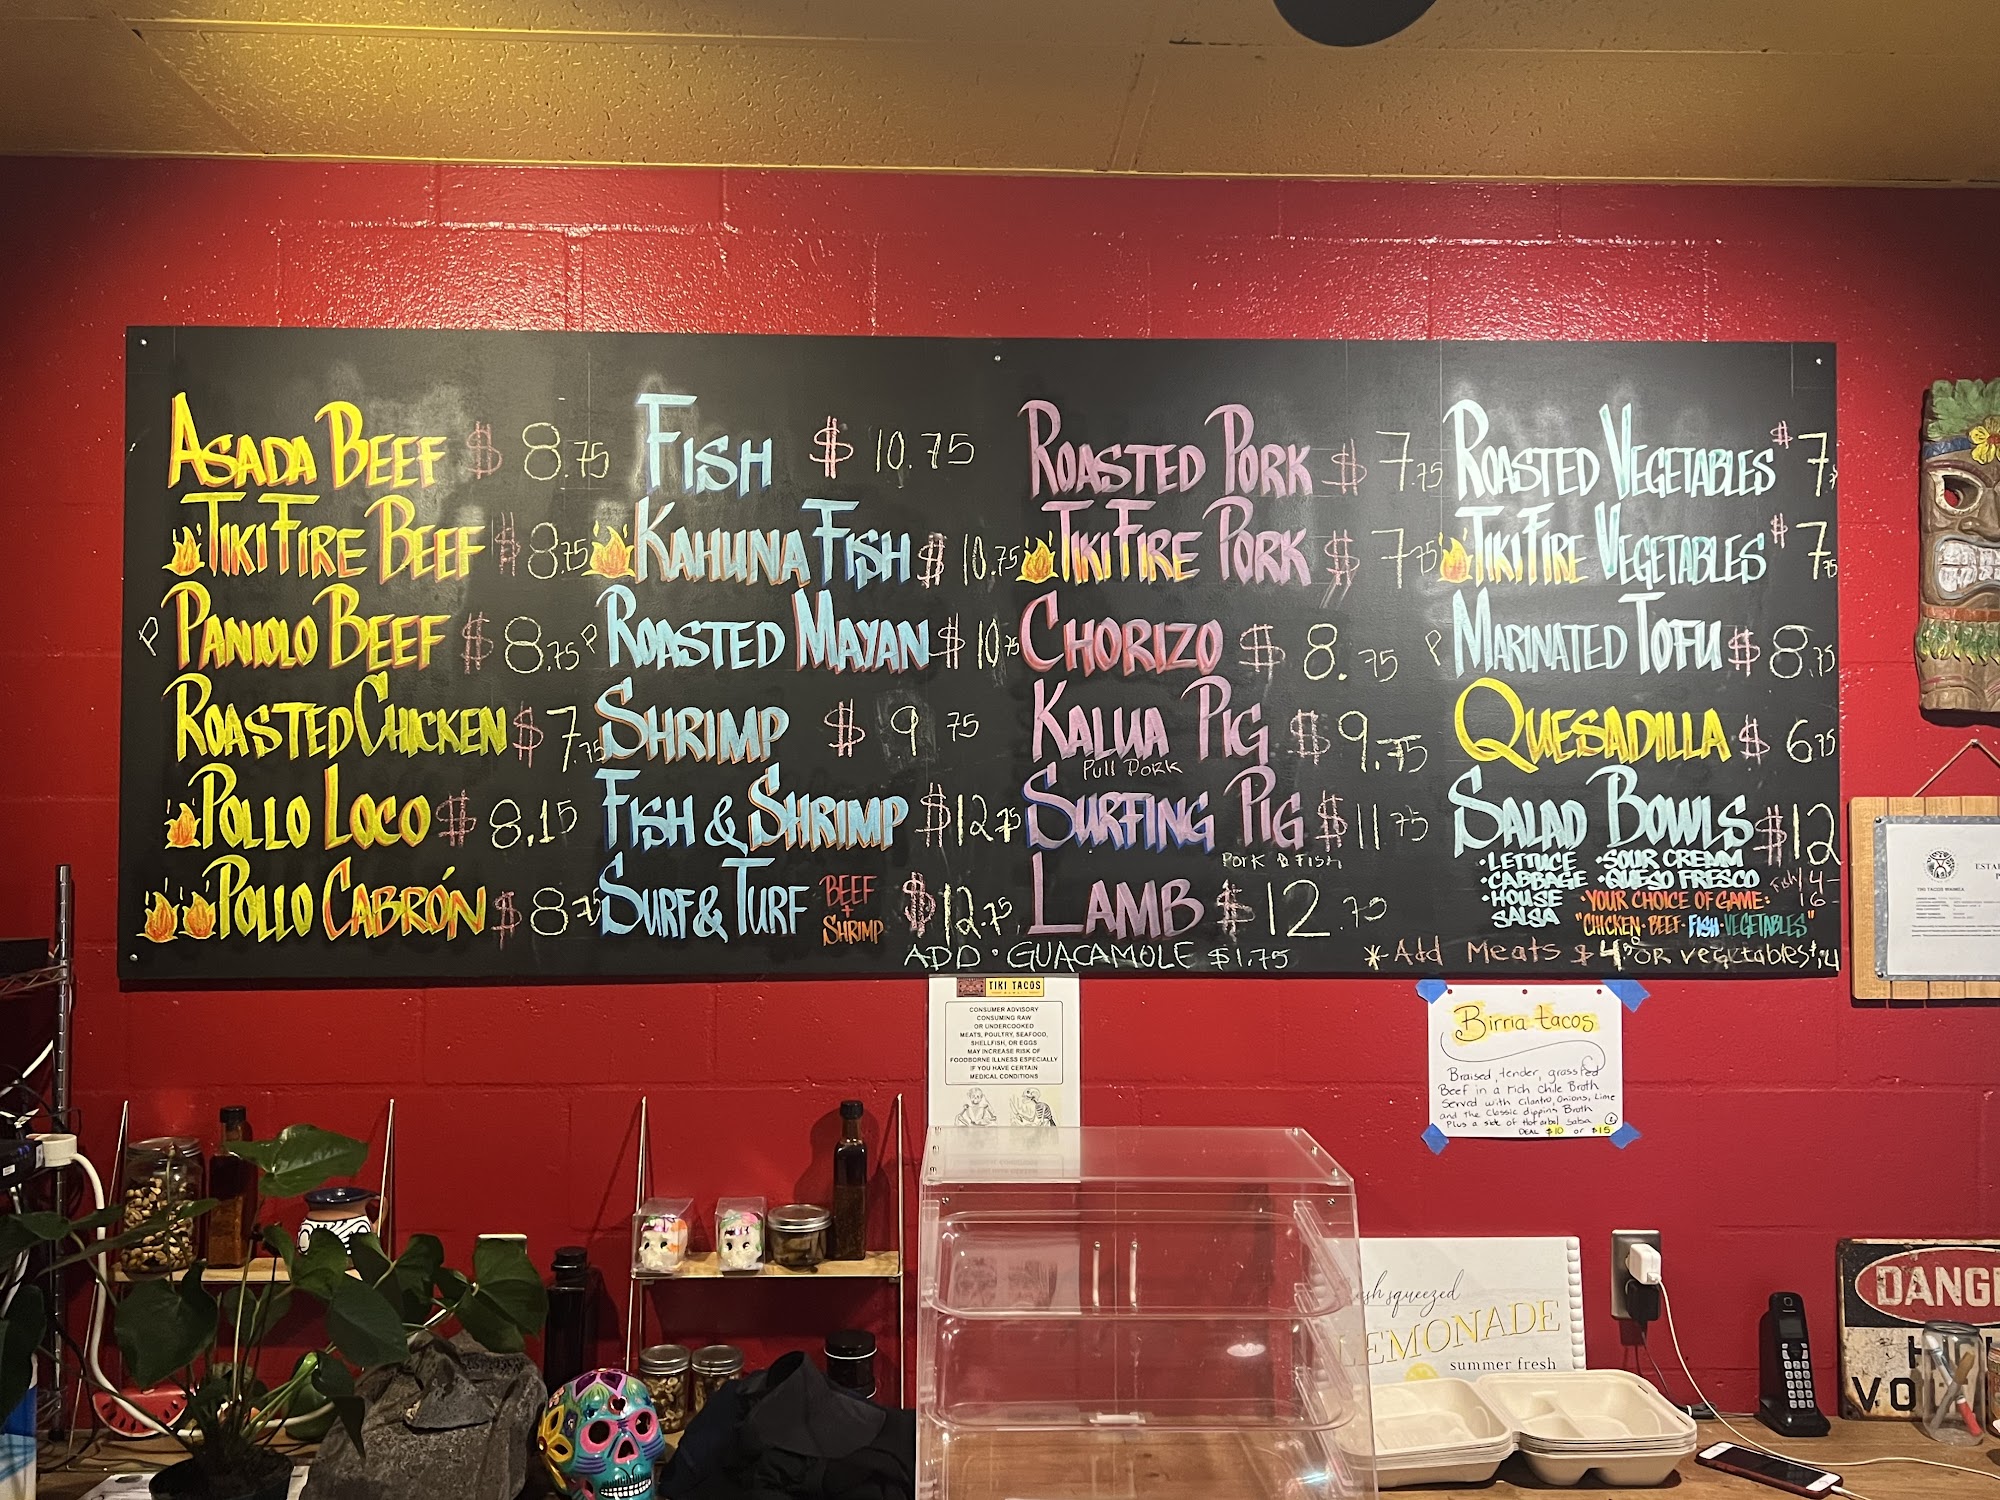 ASADA BEEF $ 8.75
TIKI FIRE BEEF $ 8.75
P PANIOLO BEEF $ 8.75
ROASTED CHICKEN $ 7.75
POLLO LOCO $ 8.15
POLLO CABRÓN $ 8.75
FISH $ 10.75
KAHUNA FISH $ 10.75
P ROASTED MAYAN $ 10.75
SHRIMP $ 9 75
FISH & SHRIMP $ 12.75
SURF & TURF BEEF + SHRIMP $ 12.75
ROASTED PORK $ 7.75
TIKI FIRE PORK $ 7.75
CHORIZO $ 8.75
KALUA PIG $ 9.75
Pull Pork
SURFING PIG $ 11 75
Pork & Fish
LAMB $ 12.75
ROASTED VEGETABLES $ 7
TIKI FIRE VEGETABLES $ 7.75
P MARINATED TOFU $ 8.75
QUESADILLA $ 6.75
SALAD BOWLS $ 12
• LETTUCE • SOUR CREAM
• CABBAGE • QUESO FRESCO Fish 14-
• HOUSE • YOUR CHOICE OF GAME: 16-
SALSA "CHICKEN • BEEF • FISH • VEGETABLES"
ADD • GUACAMOLE $ 1.75
* Add Meats $ 4.50 OR vegetables
TIKI TACOS
CONSUMER ADVISORY
CONSUMING RAW
OR UNDERCOOKED
MEATS, POULTRY, SEAFOOD,
SHELLFISH, OR EGGS
MAY INCREASE RISK OF
FOODBORNE ILLNESS ESPECIALLY
IF YOU HAVE CERTAIN
MEDICAL CONDITIONS
Birria tacos
Braised, tender, grassfed
Beef in a rich chile Broth
Served with cilantro, Onions, Lime
and the classic dipping Broth
Plus a side of Salsa
DEAL $10 or $15
squeezed
LEMONADE
summer fresh
TIKI TACOS WAIMEA
DANG